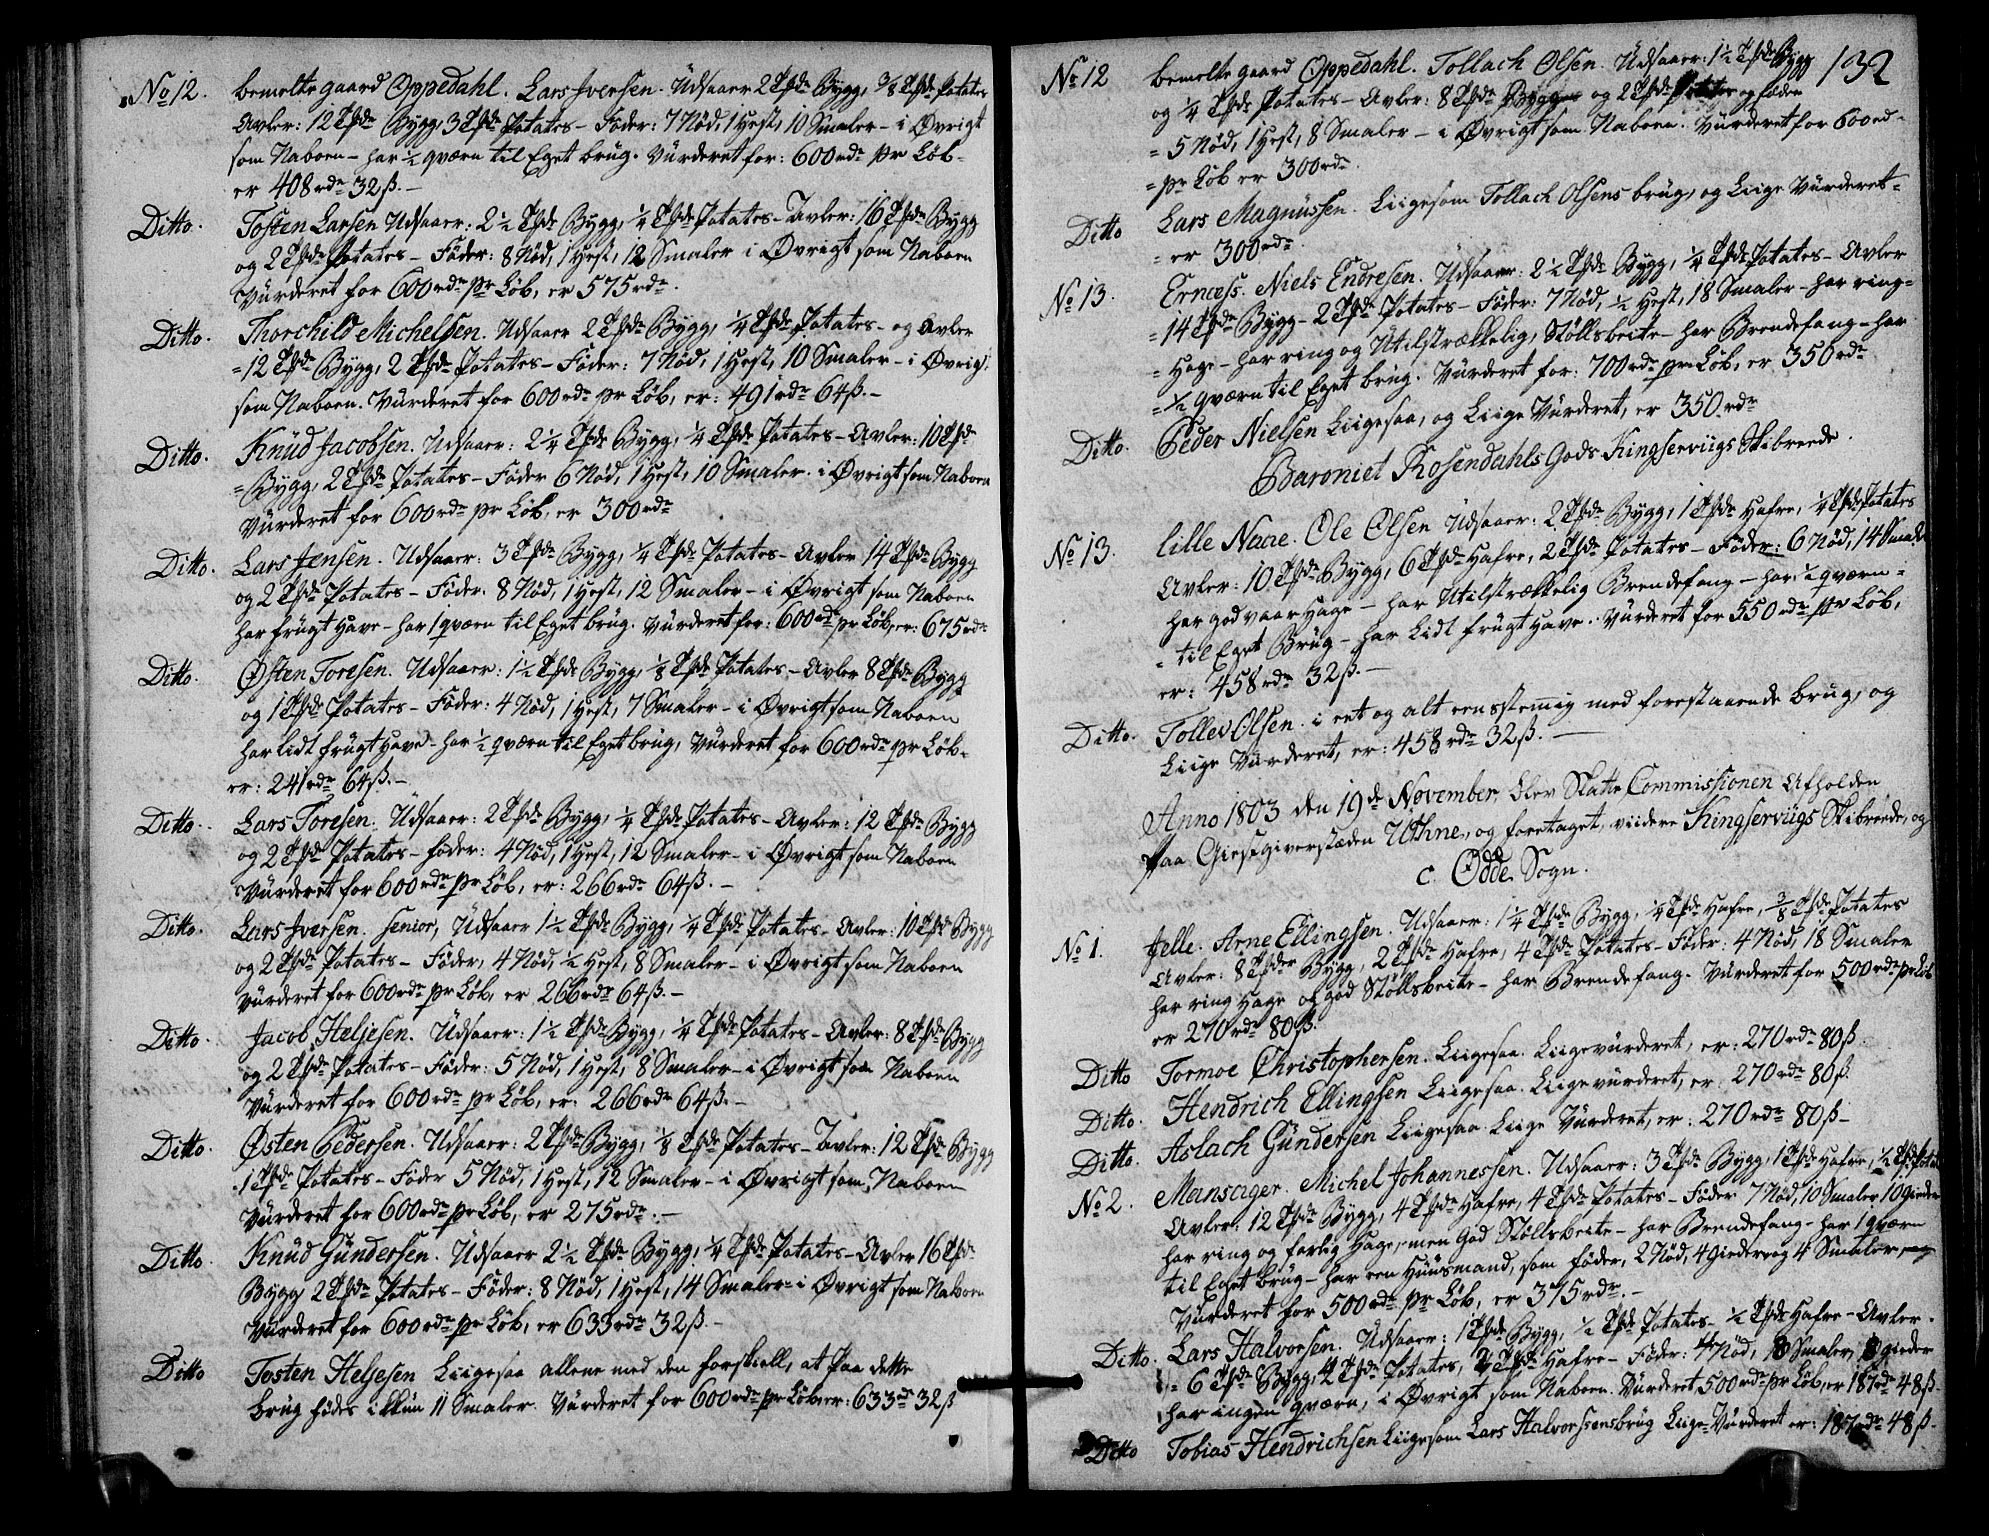 No 12. bemelte gaard Oppedahl. Lars Iversen. Udsaaer 2 Tpde Bygg, 3/8 Tpde Potates
Avler: 12 Tpde Bygg, 3 Tpde Potates - Føder: 7 Nød, 1 Hest, 10 Smaler - i Øvrigt
som Naboen - har ½ qværn til Eget brug. Vurderet for: 600 rdr pr Løb -
er 408 rdr 32 ß. -
Ditto. Tosten Larsen Udsaaer: 2 ½ Tpde Bygg, ¼ Tpde Potates - Avler: 16 Tpde Bygg
og 2 Tpde Potates - Føder: 8 Nød, 1 Hest, 12 Smaler i Øvrigt som Naboen
Vurderet for 600 rdr pr Løb, er 575 rdr.
Ditto. Thorchild Michelsen. Udsaaer 2 Tpde Bygg, ¼ Tpde Potates - og Avler
= 12 Tpde Bygg, 2 Tpde Potates - Føder: 7 Nød, 1 Hest, 10 Smaler - i Øvrigt
som Naboen. Vurderet for 600 rdr pr Løb, er: 491 rdr 64 ß. -
Ditto. Knud Jacobsen. Udsaaer: 2 ¼ Tpde Bygg, ¼ Tpde Potates - Avler: 10 Tpde
= Bygg, 2 Tpde Potates - Føder 6 Nød, 1 Hest, 10 Smaler. i Øvrigt som Naboen
Vurderet for 600 rdr pr Løb, er 300 rdr
Ditto. Lars Jensen. Udsaaer: 3 Tpde Bygg, ¼ Tpde Potates - Avler 14 Tpde Bygg
og 2 Tpde Potates - Føder: 8 Nød, 1 Hest, 12 Smaler - i Øvrigt som Naboen
har frugt Have - har 1 qværn til Eget brug. Vurderet for: 600 rdr pr Løb, er: 675 rdr
Ditto. Østen Toresen. Udsaaer: 1 ½ Tpde Bygg, 1/8 Tpde Potates - Avler 8 Tpde Bygg
og 1 Tpde Potates - Føder: 4 Nød, 1 Hest, 7 Smaler - i Øvrigt som Naboen
har lidt frugt Have - har ½ qværn til Eget brug, Vurderet for 600 rdr pr Løb -
er: 241 rdr 64 ß. -
Ditto. Lars Toresen. Udsaaer: 2 Tpde Bygg, ¼ Tpde Potates - Avler: 12 Tpde Bygg
og 2 Tpde Potates - føder: 4 Nød, 1 Hest, 12 Smaler - i Øvrigt som Naboen
Vurderet for 600 rdr pr Løb, er: 266 rdr 64 ß. -
Ditto. Lars Iversen. senior, Udsaaer 1 ½ Tpde Bygg, ¼ Tpde Potates - Avler: 10 Tpde Bygg
og 2 Tpde Potates - Føder, 4 Nød, ½ Hest, 8 Smaler - i Øvrigt som Naboen
Vurderet for 600 rdr pr Løb, er 266 rdr 64 ß. -
Ditto. Jacob Heljesen. Udsaaer: 1 ½ Tpde Bygg, ¼ Tpde Potates - Avler: 8 Tpde Bygg
og 2 Tpde Potates - Føder: 5 Nød, 1 Hest, 8 Smaler - i Øvrigt som Naboen
Vurderet for 600 rdr pr Løb, er. 266 rdr 64 ß. -
Ditto. Østen Pedersen. Udsaaer: 2 Tpde Bygg, 1/8 Tpde Potates - Avler: 12 Tpde Bygg
1 Tpde Potates - Føder 5 Nød, 1 Hest, 12 Smaler - i Øvrigt som Naboen
Vurderet for 600 rdr pr Løb, er 275 rdr. -
Ditto. Knud Gundersen. Udsaaer 2 ½ Tpde Bygg, ¼ Tpde Potates - Avler 16 Tpde
Bygg 2 Tpde Potates - Føder: 8 Nød, 1 Hest, 14 Smaler - i Øvrigt som Naboen
Vurderet for 600 rdr pr Løb, er 633 rdr 32 ß. -
Ditto Tosten Heljesen Liigesaa allene med den forskiell, at paa dette
brug fødes ikkun 11 Smaler. Vurderet for 600 rdr pr Løb er: 633 rdr 32 ß
132
No 12 bemelte gaard Oppedahl. Tollach Olsen. Udsaaer: 1 ½ Tpde Bygg
og ¼ Tpde Potates - Avler: 8 Tpde Bygg og 2 Tpde Potates og føder
= 5 Nød, 1 Hest, 8 Smaler - i Øvrigt som Naboen. Vurderet for 600 rd -
= pr Løb er 300 rdr.
Ditto Lars Magnussen. Liigesom Tollach Olsens brug, og Liige Vurderet =
= er 300 rdr.
No 13. Ernæss. Niels Endresen. Udsaaer: 2 ¼ Tpde Bygg, ¼ Tpde Potates - Avler
= 14 Tpde Bygg - 2 Tpde Potates - Føder: 7 Nød, ½ Hest, 18 Smaler - har ring =
= Hage - har ring og Utilstrækkelig, Støllsbeite - har Brendefang - har
= ½ qværn til Eget brug. Vurderet for: 700 rdr pr Løb, er 350 rdr
Ditto. Peder Nielsen Liigesaa, og Liige Vurderet, er 350 rdr
Baroniet Rosendahls Gods Kingserviigs Skibreede.
No 13. lille Naae. Ole Olsen Udsaaer: 2 Tpde Bygg, 1 Tpde Hafre, ¼ Tpde Potates
Avler: 10 Tpde Bygg, 6 Tpde Hafre, 2 Tpde Potates - Føder: 6 Nød, 14 Smaler
har god vaar Hage - har Utilstrækkelig Brendefang - har ½ qværn =
= til Eget Brug - har Lidt frugt Have. Vurderet for 550 rdr pr Løb,
er: 458 rdr 32 ß. -
Ditto. Tollev Olsen. i eet og alt eensstemig med forestaaende brug, og
Liige Vurderet, er: 458 rdr 32 ß. -
Anno 1803 den 19de November, blev Skatte Commissionen Afholden
paa Giestgiverstæden Uthne, og foretaget, viidere Kingserviigs Skibreede, og
c. Odde Sogn.
No 1. Jelle. Arne Ellingsen. Udsaaer: 1 ¼ Tpde Bygg, ¼ Tpde Hafre, 3/8 Tpde Potates
Avler: 8 Tpder Bygg, 2 Tpde Hafre, 4 Tpde Potates - Føder: 4 Nød, 18 Smaler
har ring Hage og god Støllsbeite - har Brendefang. Vurderet for 500 rdr pr Løb
er 270 rdr 80 ß.
Ditto Tormoe Christophersen. Liigesaa. Liige vurderet, er: 270 rdr 80 ß.
Ditto. Hendrich Ellingsen Liigesaa. Liige vurderet, er 270 rdr 80 ß.
Ditto. Aslach Gundersen Liigesaa. Liige Vurderet, er: 270 rdr 80 ß -
No 2. Mansager. Michel Johannessen. Udsaaer: 3 Tpde Bygg, 1 Tpde Hafre, ½ Tpde Potat
Avler: 12 Tpde Bygg, 4 Tpde Hafre, 4 Tpde Potates - Føder 7 Nød, 10 Smaler 10 gieder
har ring og farlig Hage, men God Støllsbeite - har Brendefang - har 1 qværn
til Eget brug - har een Huusmand, som føder, 2 Nød, 4 Gieder og 4 Smaler
Vurderet for 500 rdr pr Løb, er 375 rdr. -
Ditto. Lars Halvorsen. Udsaaer: 1 Tpde Bygg, ½ Tpde Potates - ½ Tpde Hafre - Avler.
= 6 Tpde Bygg, 4 Tpde Potates, 2 Tpde Hafre - Føder: 4 Nød, Smaler, gieder
har ingen qværn, i Øvrigt som Naboen. Vurderet 500 rdr pr Løb, er 187 rdr 48 ß -
Ditto Tobias Hendrichsen Liigesom Lars Halvorssens brug Liige Vurderet er: 187 rdr 48 ß -